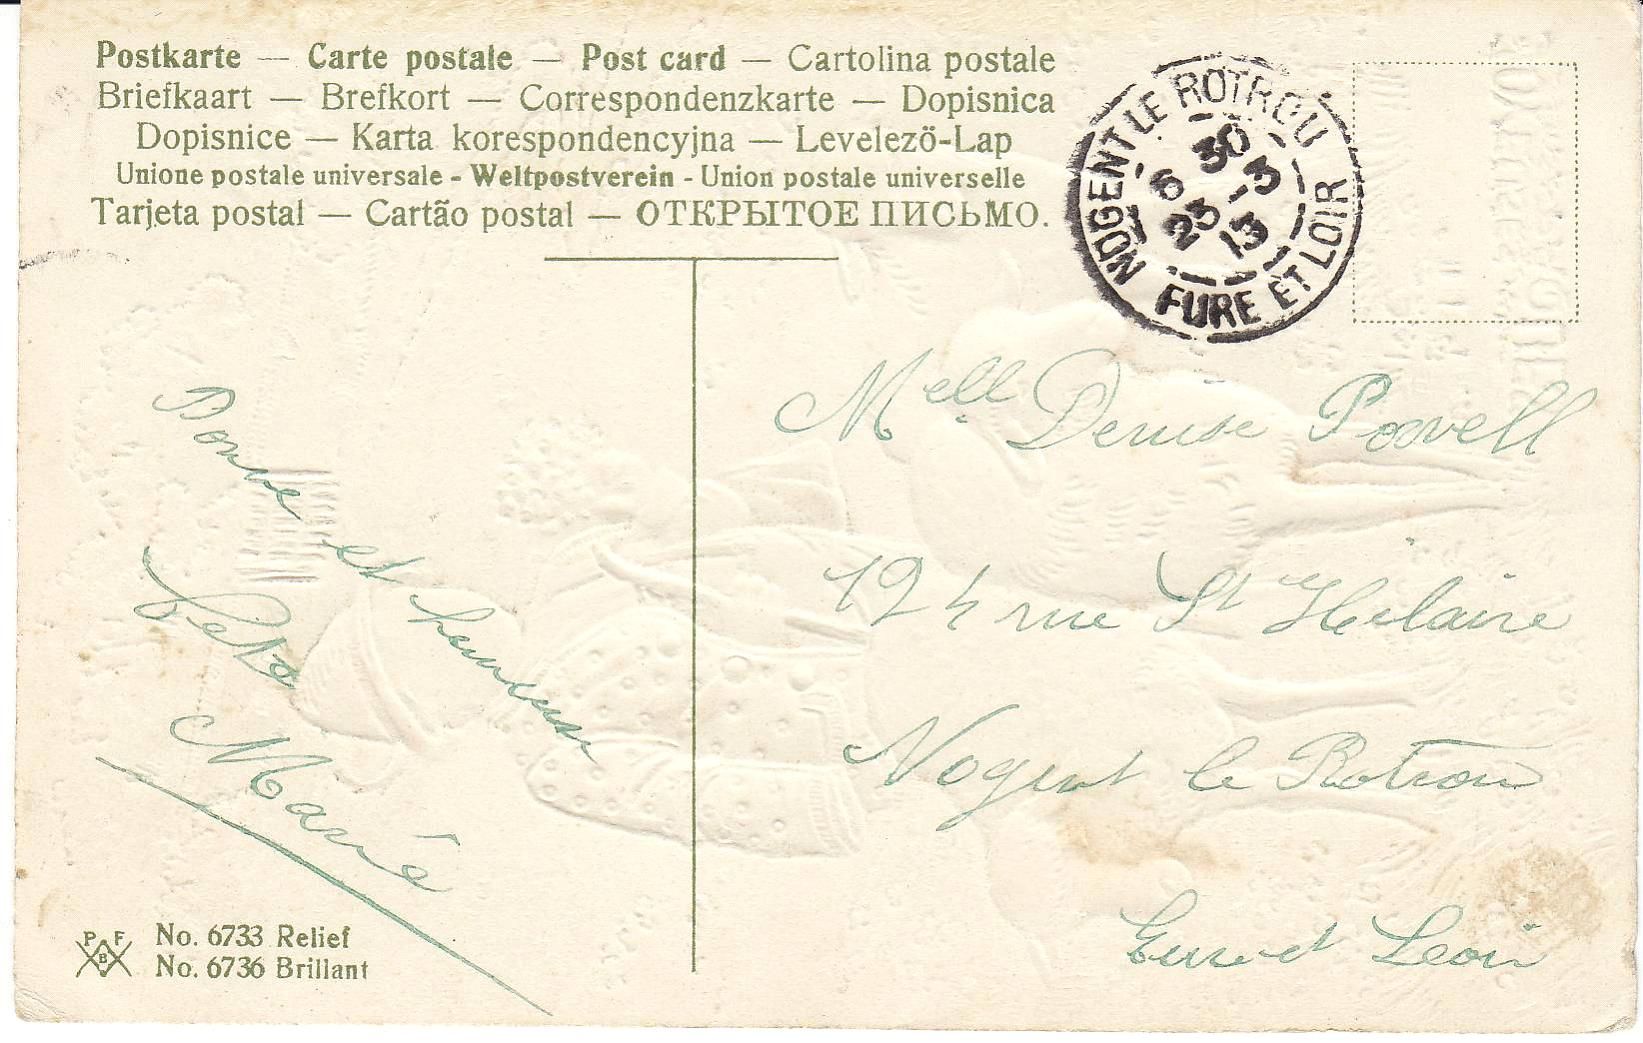 Postkarte — Carte postale — Post card — Cartolina postale
Briefkaart — Brefkort — Correspondenzkarte — Dopisnica
Dopisnice — Karta korespondencyjna — Levelező-Lap
Unione postale universale - Weltpostverein - Union postale universelle
Tarjeta postal — Cartão postal — ОТКРЫТОЕ ПИСЬМО.
NOGENT LE ROTROU
6 30
23 -3
13
EURE ET LOIR
Bonne et heureuse
fête
Marie
Mell Denise Powell
124 rue St Hilaire
Nogent le Rotrou
Eure et Loir
P F
B
No. 6733 Relief
No. 6736 Brillant